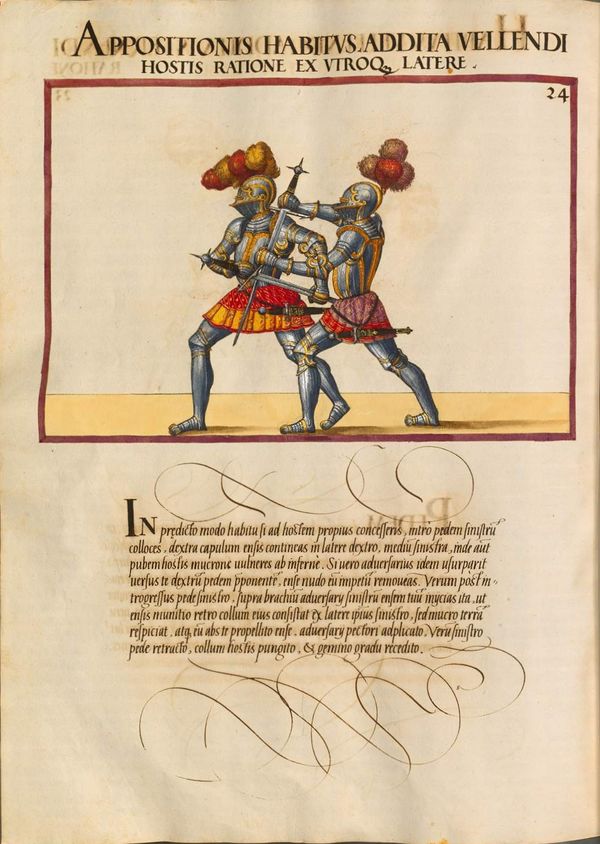 APPOSITIONIS HABITVS, ADDITA VELLENDI
HOSTIS RATIONE EX VTROQȝ LATERE.
24
IN prędicto modo habitu si ad hostem propius concesseris, intro pedem sinistrũ
colloces, dextra capulum ensis contineas in latere dextro, mediũ sinistra, inde aut
pubem hostis mucrone vulneres ab infernè. Si uero adversarius idem usurparit
versus te dextrũ pedem pponente, ense nudo eũ impetũ removeas. Verum post
trogressus pede sinistro, supra brachiũ adversarÿ sinistrũ ensem tuũ inÿcias ita, ut
ensis munitio retro collum eius consistat ex latere ipsius sinistro, sed mucro terrã
respiciat, atq̃ eũ abs te propellito ense, adversarÿ pectori adplicato. Verũ sinistro
pede retracto, collum hostis pungito, & gemino gradu recedito.